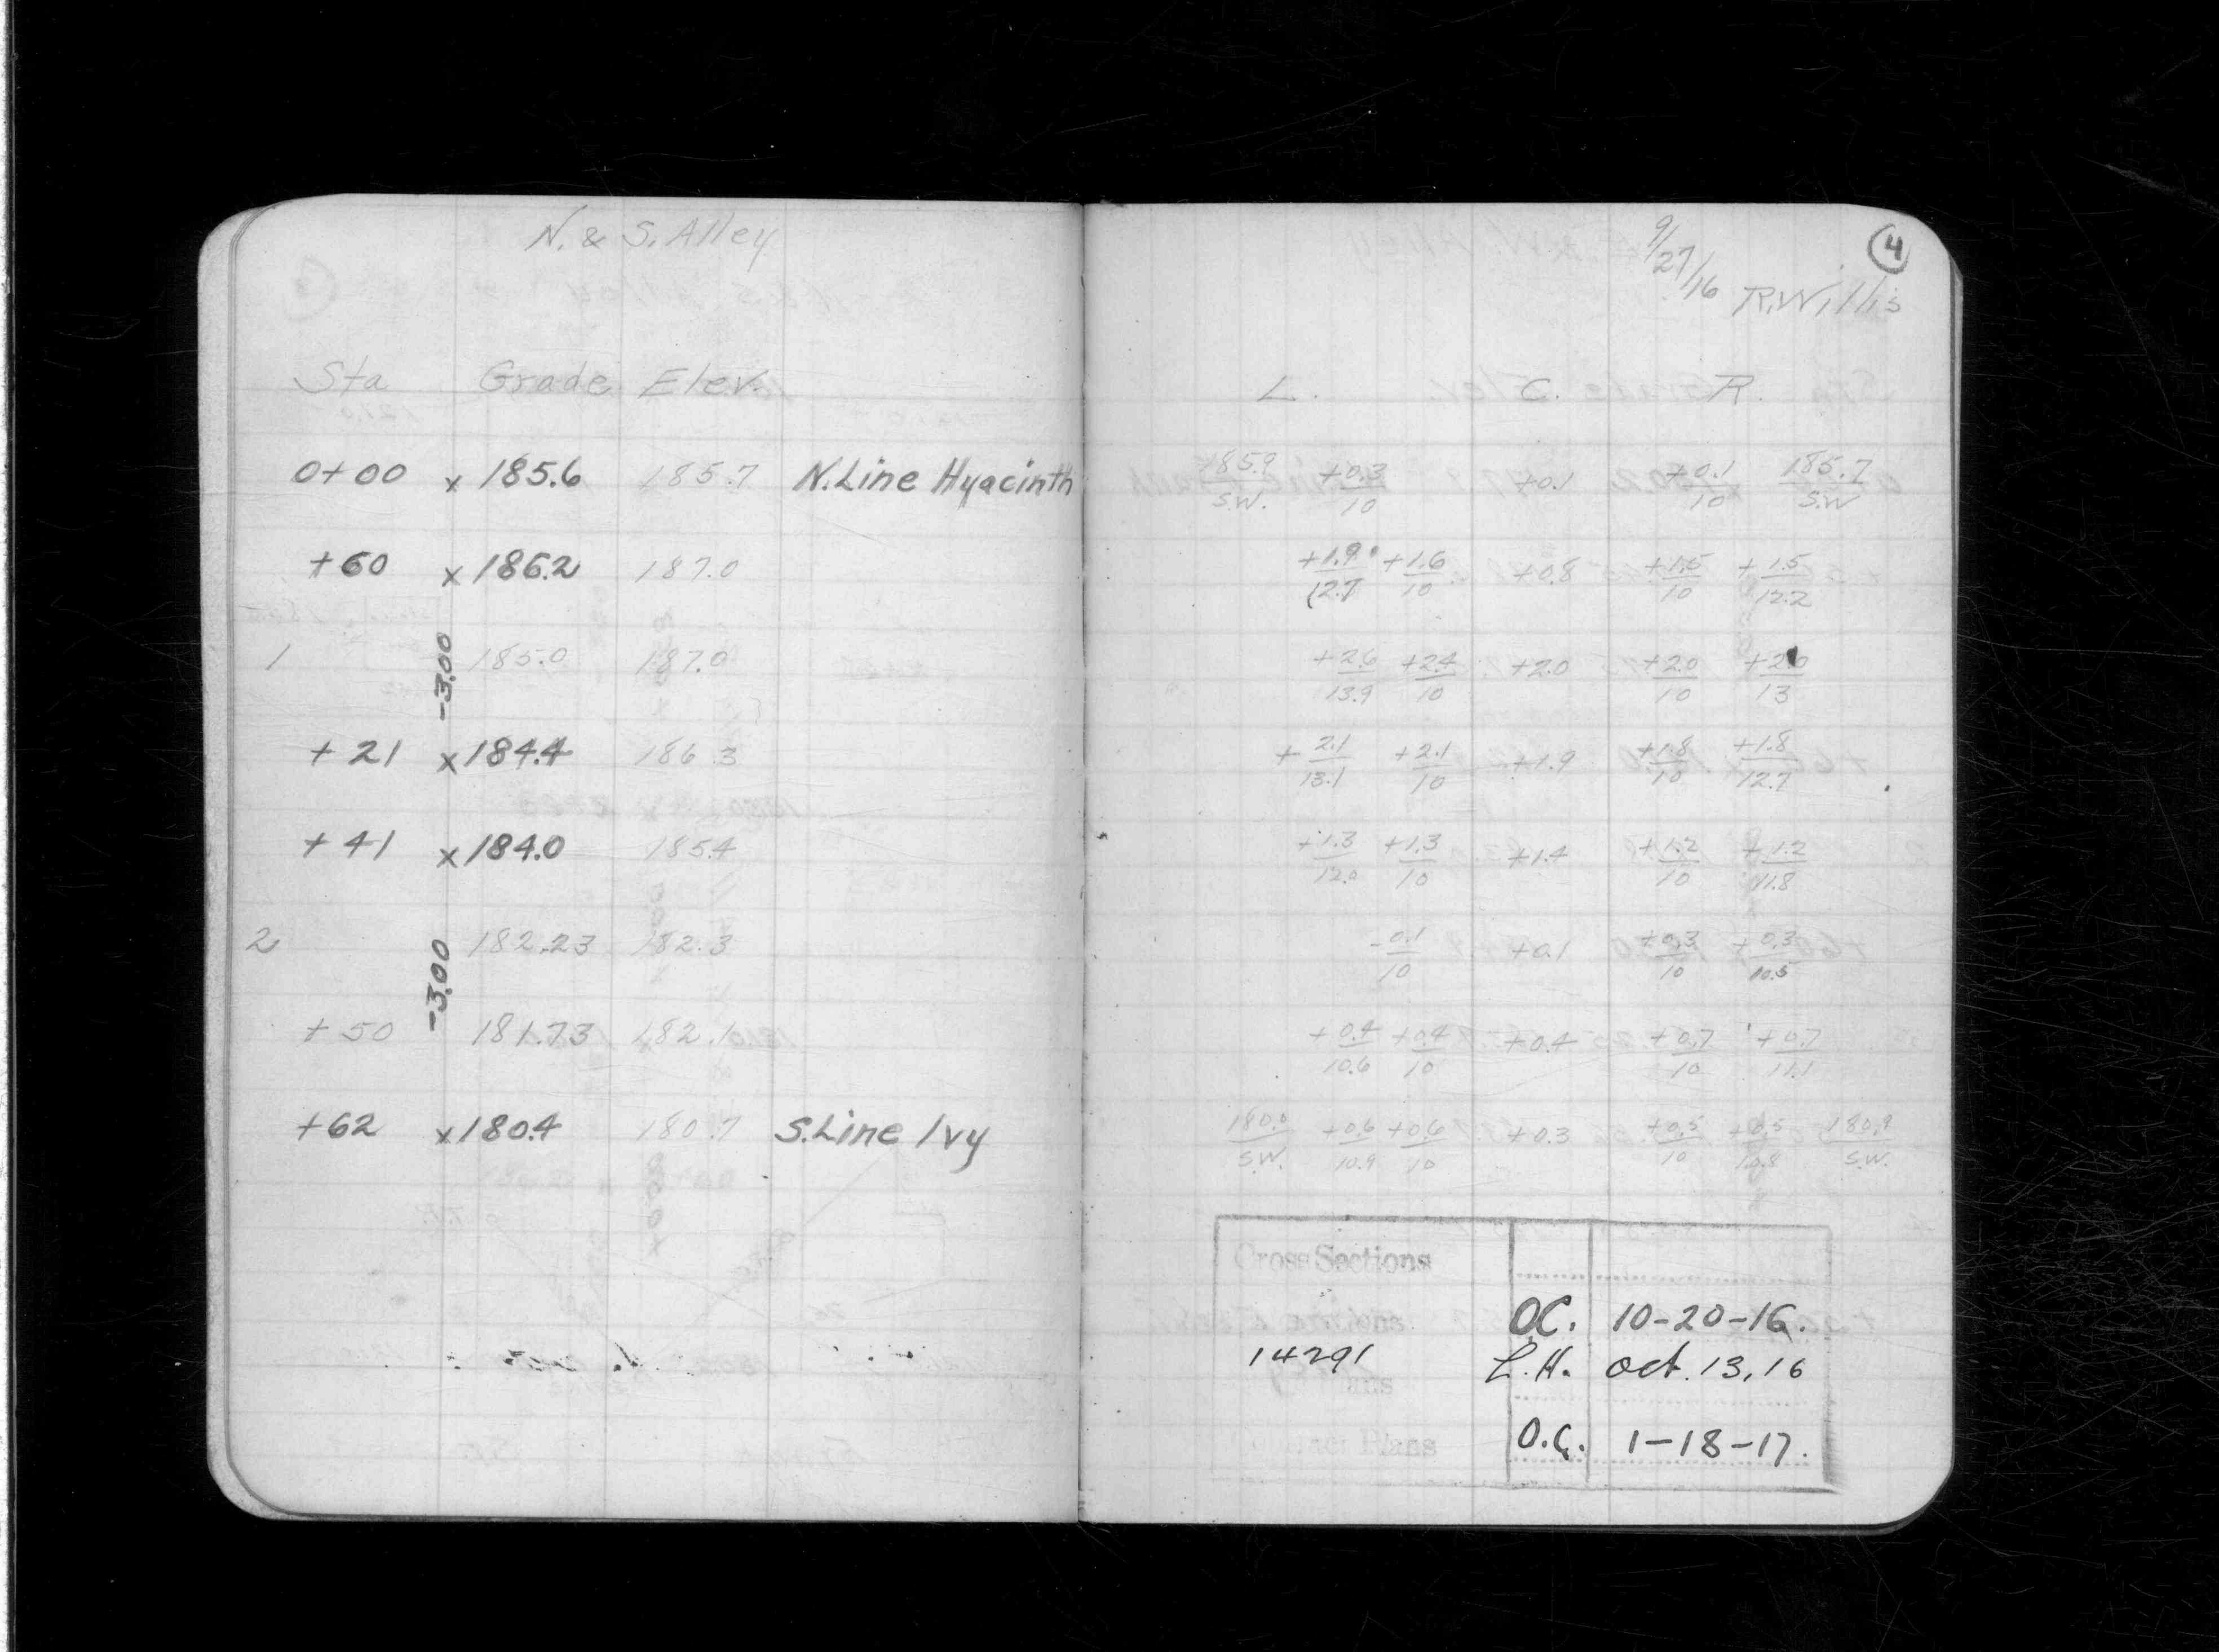 N. & S. Alley
Sta Grade Elev.
0+00 x 185.6 185.7 N.Line Hyacinth
+60 x 186.2 187.0
-3.00
1 185.0 187.0
+21 x 184.4 186.3
+41 x 184.0 185.4
-3.00
2 182.23 182.3
+50 181.73 182.1
+62 x 180.4 180.7 S.Line Ivy
4
9/27/16
R.Willis
L. C. R.
185.9/S.W. +0.3/10 +0.1 +0.1/10 185.7/S.W
+1.9/12.7 +1.6/10 +0.8 +1.5/10 +1.5/12.2
+2.6/13.9 +2.4/10 +2.0 +2.0/10 +2.0/13
+2.1/13.1 +2.1/10 +1.9 +1.8/10 +1.8/12.7
+1.3/12.0 +1.3/10 +1.4 +1.2/10 +1.2/11.8
-0.1/10 +0.1 +0.3/10 +0.3/10.5
+0.4/10.6 +0.4/10 +0.4 +0.7/10 +0.7/11.1
180.0/S.W. +0.6/10.9 +0.6/10 +0.3 +0.5/10 +0.5/10.8 180.9/S.W.
Cross Sections
O.C. 10-20-16.
14291 L.H. Oct. 13, 16
Plans O.C. 1-18-17.